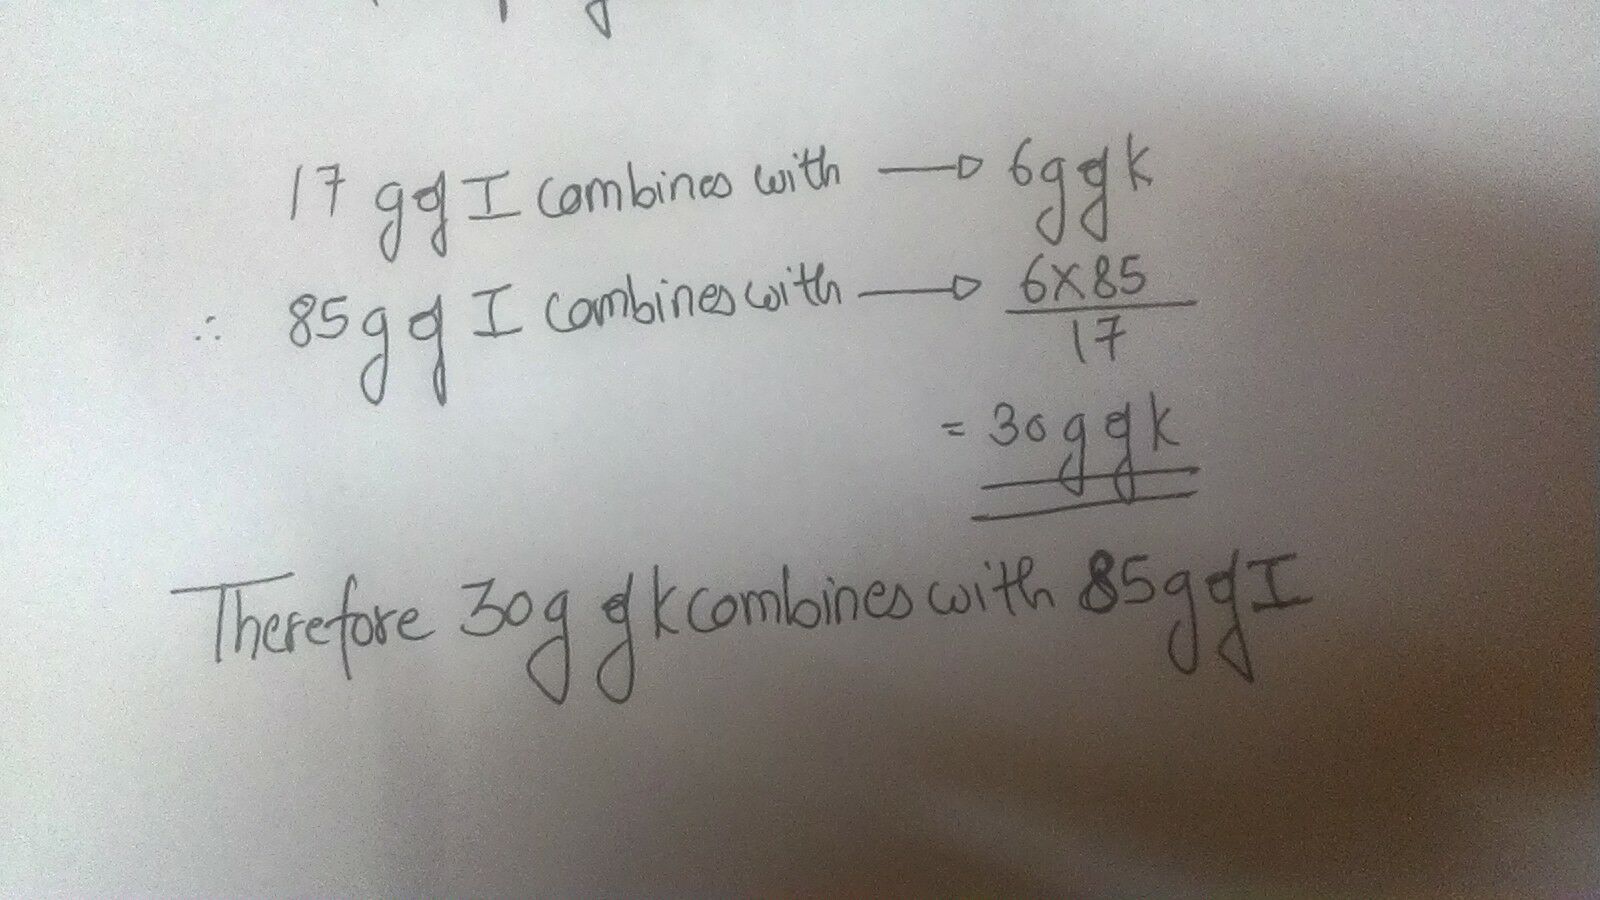 17 g of I combines with → 6g of K
∴ 85g of I combines with → 6×85
17
= 30g of K
Therefore 30g of K combines with 85g of I